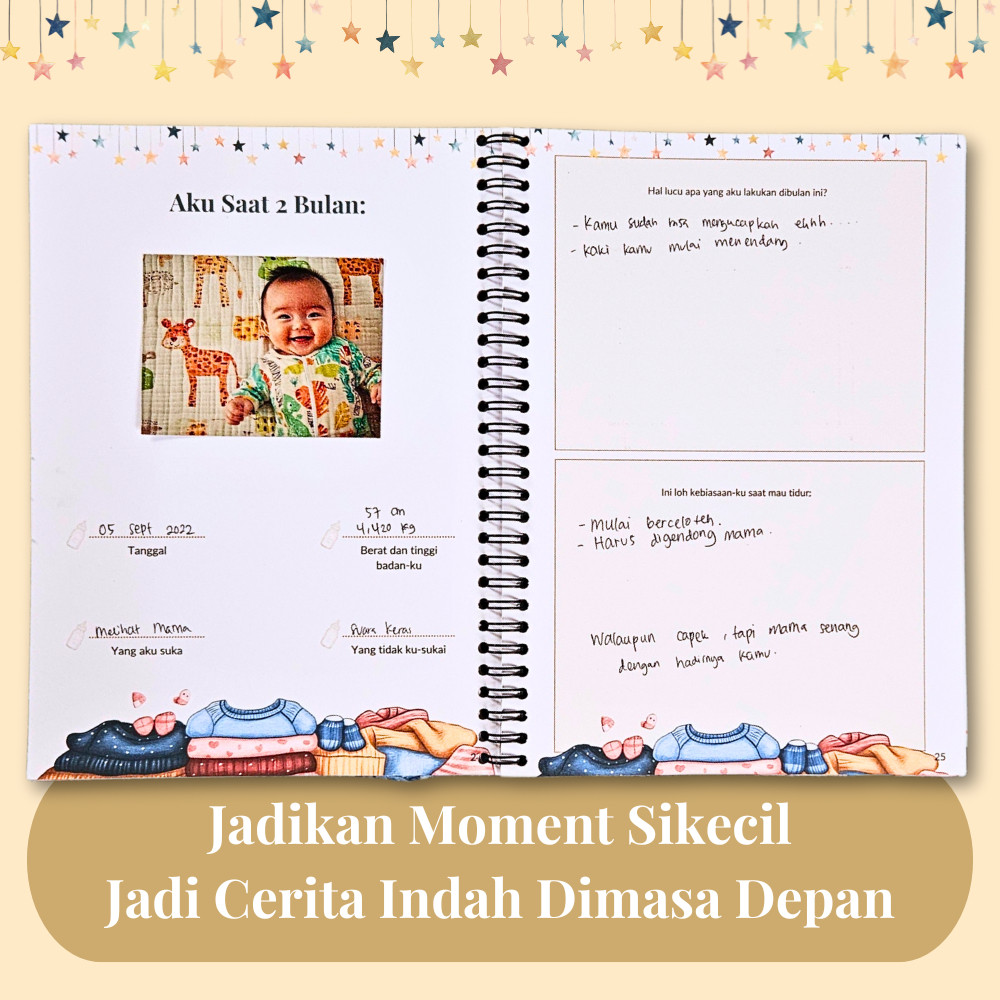 Aku Saat 2 Bulan:
05 Sept 2022
Tanggal
57 cm
4,420 kg
Berat dan tinggi
badan-ku
Melihat Mama
Yang aku suka
Suara keras
Yang tidak ku-sukai
24
Hal lucu apa yang aku lakukan dibulan ini?
- Kamu sudah bisa mengucapkan ehhh....
- kaki kamu mulai menendang.
Ini loh kebiasaan-ku saat mau tidur:
- Mulai berceloteh.
- Harus digendong mama.
Walaupun capek, tapi mama senang
dengan hadirnya kamu.
25
Jadikan Moment Sikecil
Jadi Cerita Indah Dimasa Depan